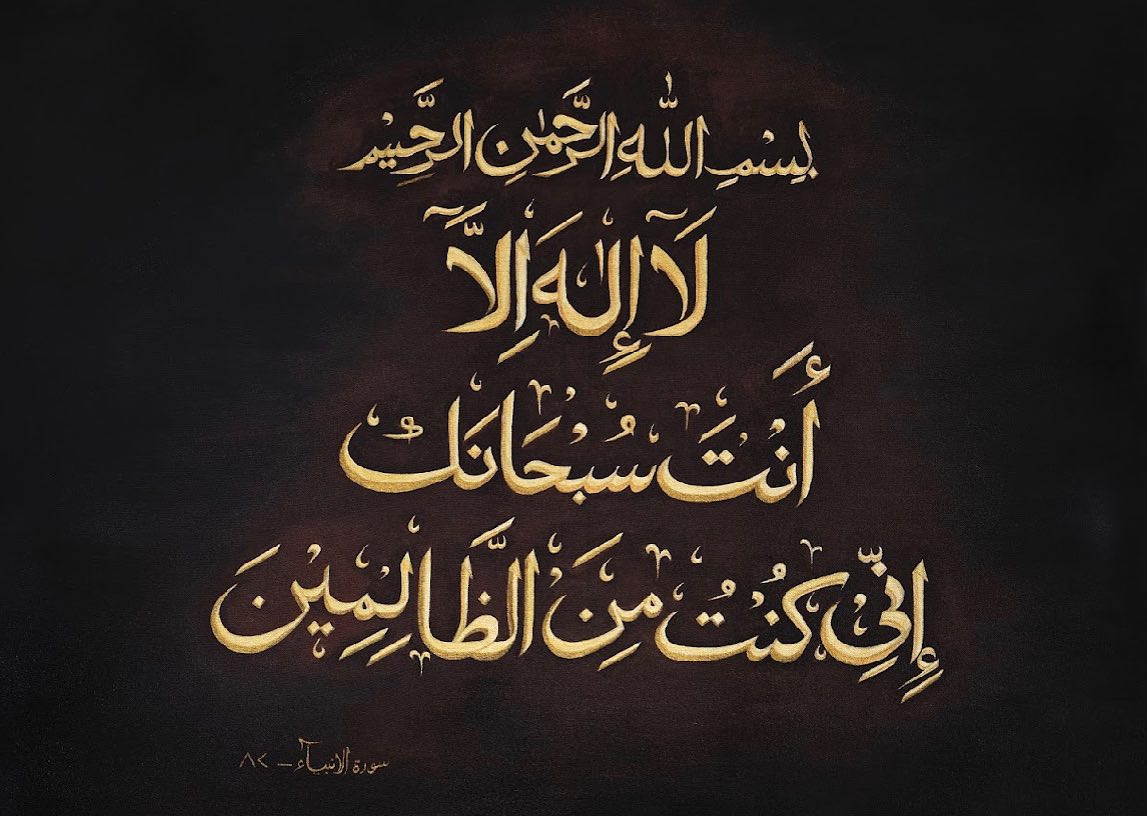 بِسْمِ اللّٰهِ الرَّحْمٰنِ الرَّحِيْمِ
لَآ إِلٰهَ اِلَّآ
أَنْتَ سُبْحَانَكَ
إِنِّي كُنْتُ مِنَ الظَّالِمِيْنَ
سورة الانبيآء - ٨٧